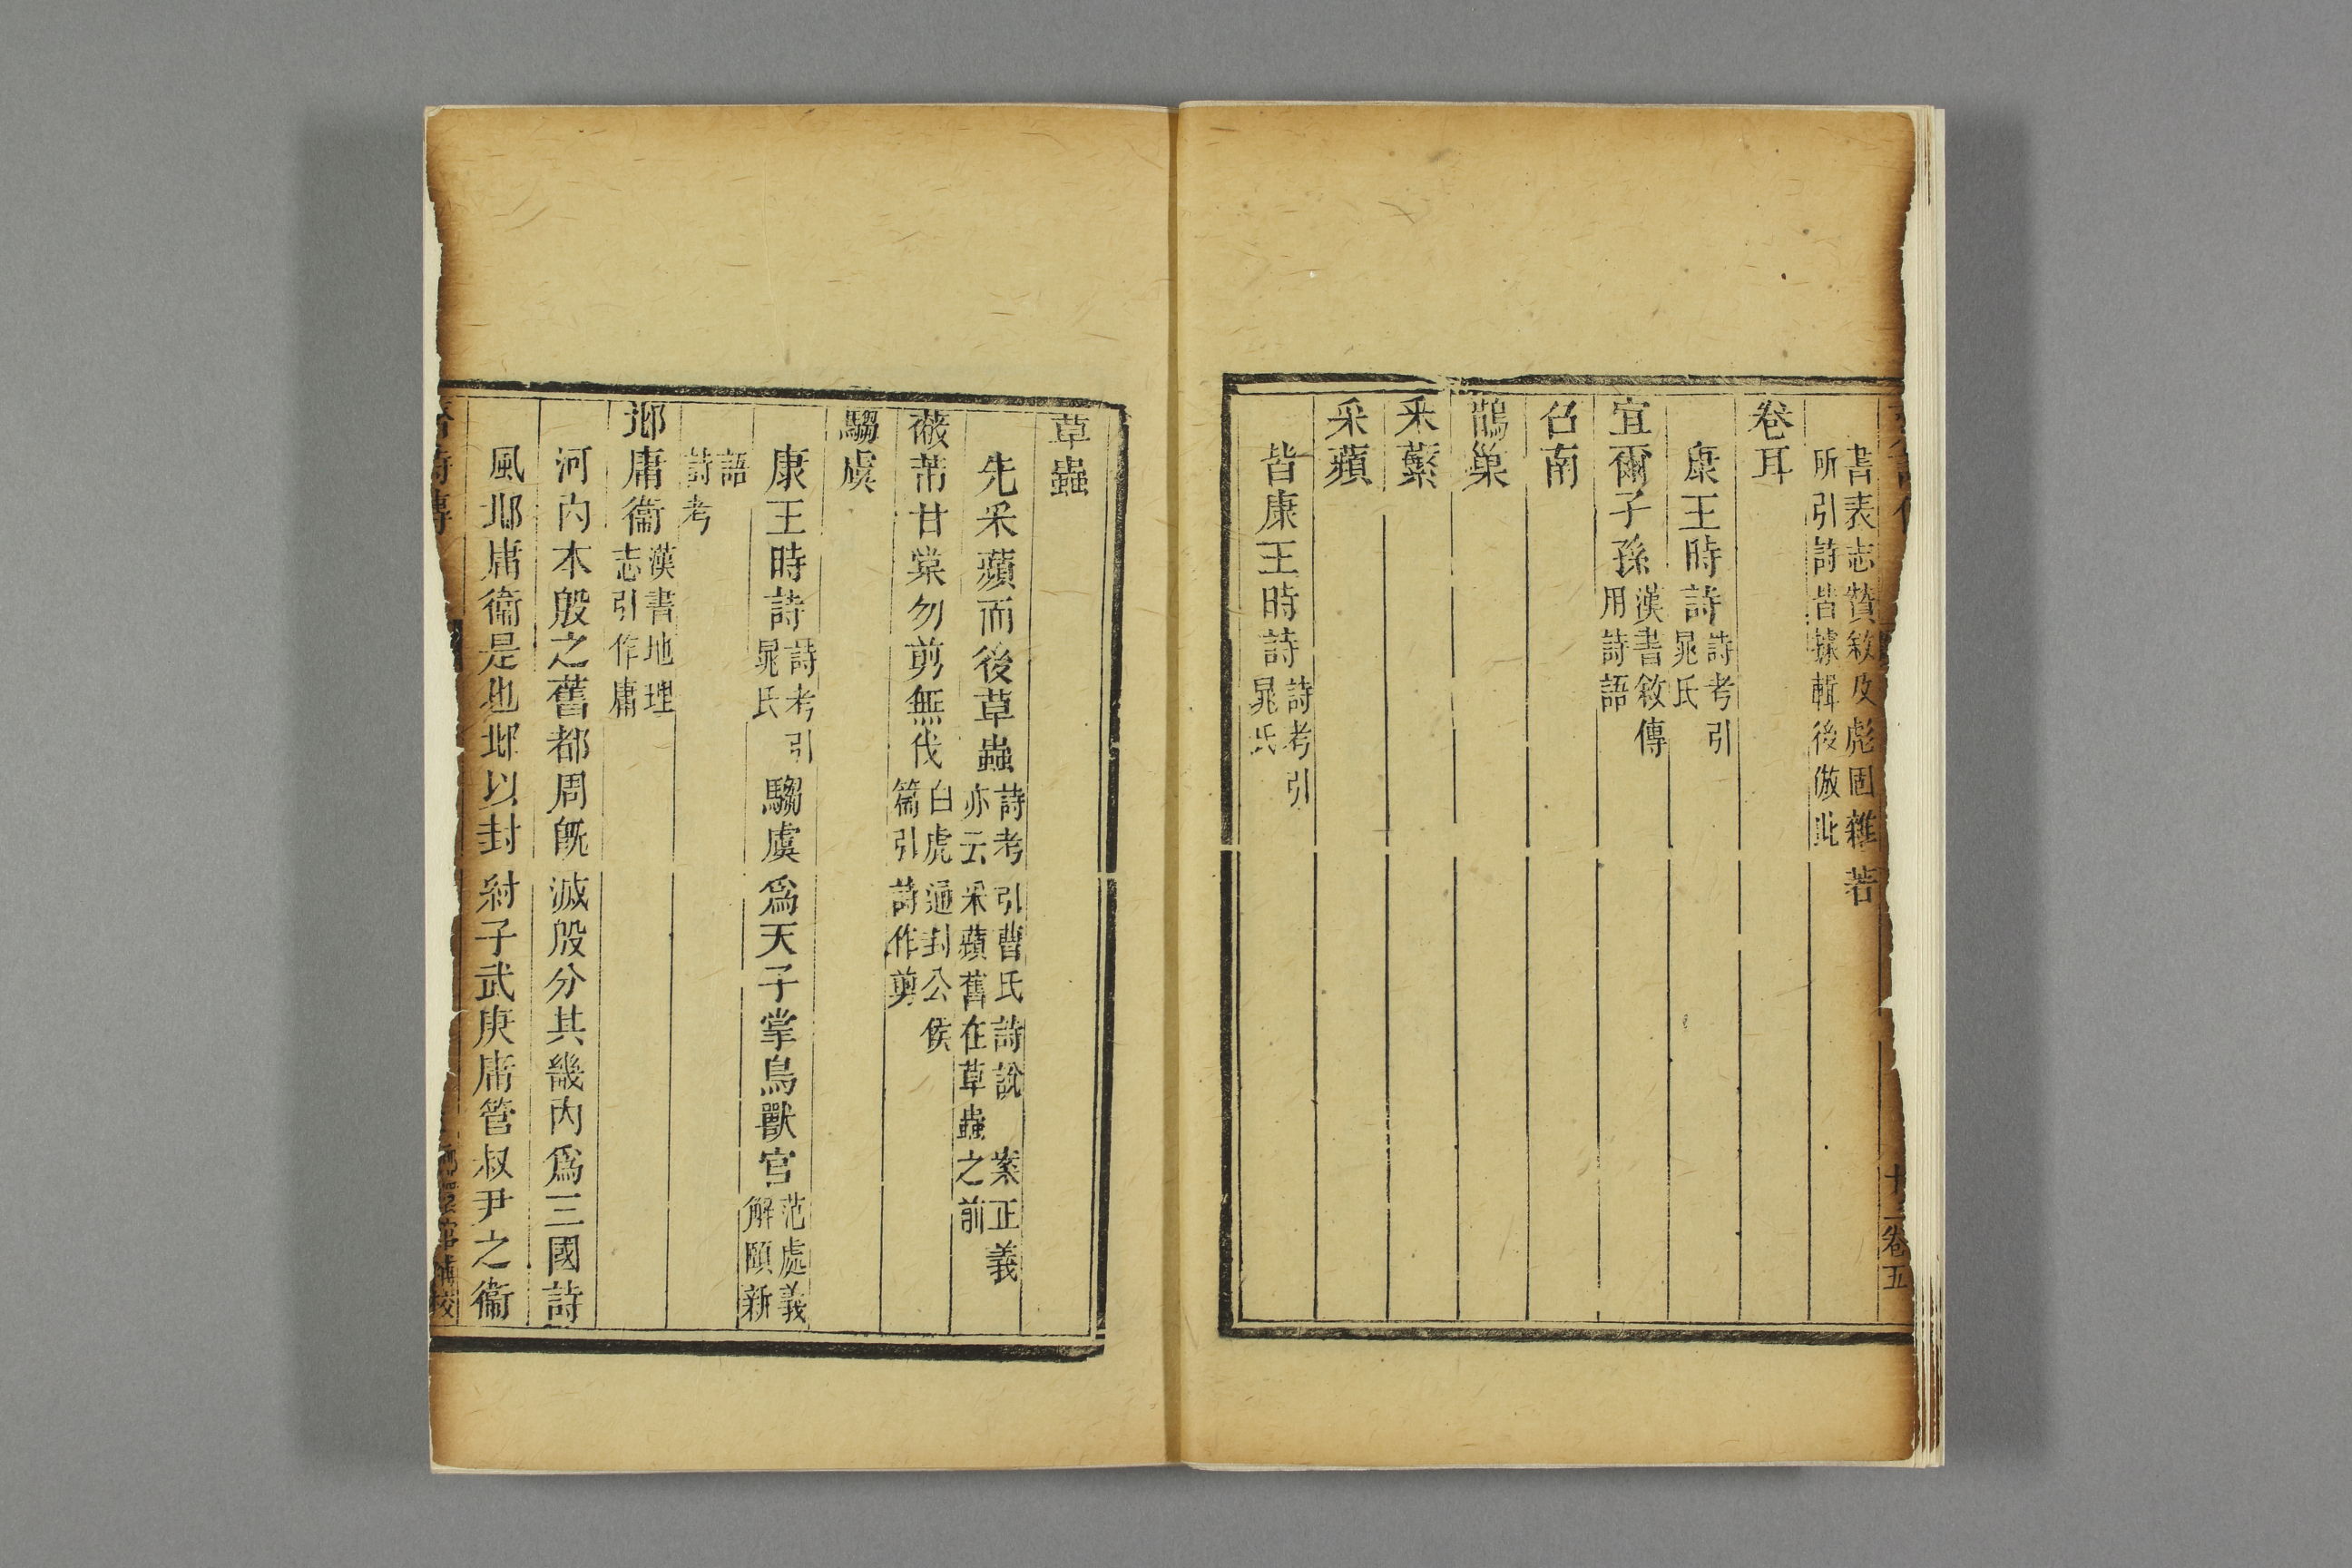 書表志贊敘及彪固雜著所引詩皆據輯後倣此
卷耳
康王時詩詩考引晁氏
宜爾子孫漢書敘傳用詩語
召南
鵲巢
采蘩
采蘋
皆康王時詩詩考引晁氏
卷五
草蟲
先采蘋而後草蟲詩考引曹氏詩說案正義亦云采蘋舊在草蟲之前
蔽芾甘棠勿剪無伐白虎通封公侯篇引詩作剪
騶虞
康王時詩詩考引晁氏騶虞爲天子掌鳥獸官范處義解頤新
語詩考
邶庸衞漢書地理志引作庸
河內本殷之舊都周旣滅殷分其畿內爲三國詩
風邶庸衞是也邶以封紂子武庚庸管叔尹之衞
詩傳
補校